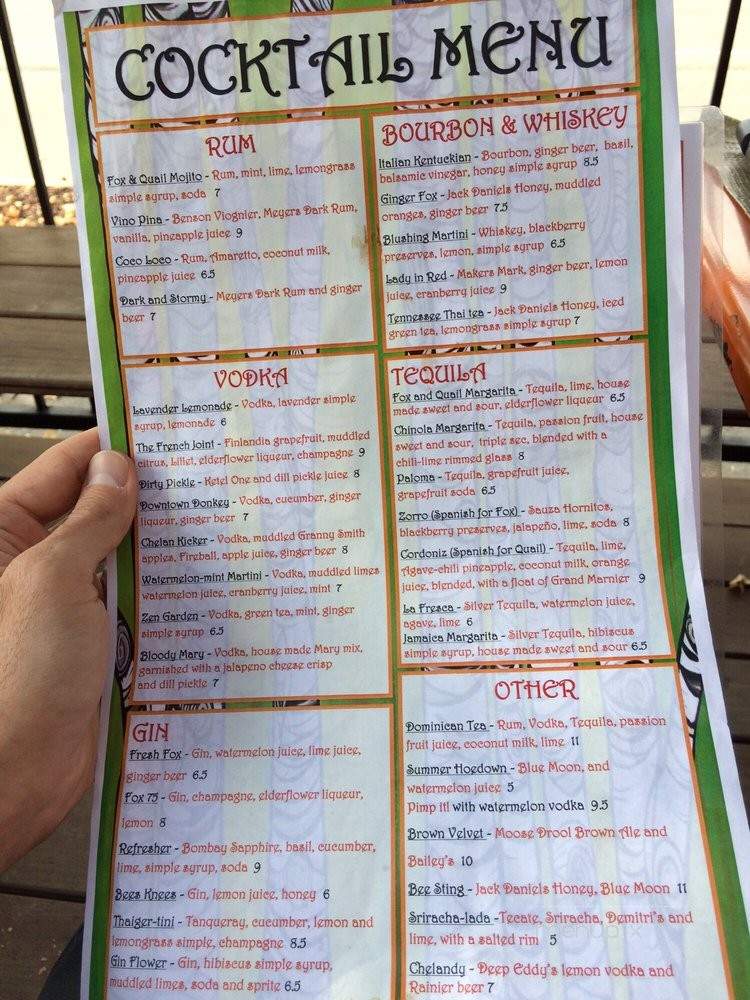 COCKTAIL MENU
RUM
Fox & Quail Mojito - Rum, mint, lime, lemongrass
simple syrup, soda 7
Vino Pina - Benson Viognier, Meyers Dark Rum,
vanilla, pineapple juice 9
Coco Loco - Rum, Amaretto, coconut milk,
pineapple juice 6.5
Dark and Stormy - Meyers Dark Rum and ginger
beer 7
BOURBON & WHISKEY
Italian Kentuckian - Bourbon, ginger beer, basil,
balsamic vinegar, honey simple syrup 8.5
Ginger Fox - Jack Daniels Honey, muddled
oranges, ginger beer 7.5
Blushing Martini - Whiskey, blackberry
preserves, lemon, simple syrup 6.5
Lady in Red - Makers Mark, ginger beer, lemon
juice, cranberry juice 9
Tennessee Thai tea - Jack Daniels Honey, iced
green tea, lemongrass simple syrup 7
VODKA
Lavender Lemonade - Vodka, lavender simple
syrup, lemonade 6
The French Joint - Finlandia grapefruit, muddled
citrus, Lillet, elderflower liqueur, champagne 9
Dirty Pickle - Ketel One and dill pickle juice 8
Downtown Donkey - Vodka, cucumber, ginger
liqueur, ginger beer 7
Chelan Kicker - Vodka, muddled Granny Smith
apples, Fireball, apple juice, ginger beer 8
Watermelon-mint Martini - Vodka, muddled limes
watermelon juice, cranberry juice, mint 7
Zen Garden - Vodka, green tea, mint, ginger
simple syrup 6.5
Bloody Mary - Vodka, house made Mary mix,
garnished with a jalapeno cheese crisp
and dill pickle 7
TEQUILA
Fox and Quail Margarita - Tequila, lime, house
made sweet and sour, elderflower liqueur 6.5
Chinola Margarita - Tequila, passion fruit, house
sweet and sour, triple sec, blended with a
chili-lime rimmed glass 8
Paloma - Tequila, grapefruit juice,
grapefruit soda 6.5
Zorro (Spanish for Fox) - Sauza Hornitos,
blackberry preserves, jalapeño, lime, soda 8
Cordoniz (Spanish for Quail) - Tequila, lime,
Agave-chili pineapple, coconut milk, orange
juice, blended, with a float of Grand Marnier 9
La Fresca - Silver Tequila, watermelon juice,
agave, lime 6
Jamaica Margarita - Silver Tequila, hibiscus
simple syrup, house made sweet and sour 6.5
GIN
Fresh Fox - Gin, watermelon juice, lime juice,
ginger beer 6.5
Fox 75 - Gin, champagne, elderflower liqueur,
lemon 8
Refresher - Bombay Sapphire, basil, cucumber,
lime, simple syrup, soda 9
Bees Knees - Gin, lemon juice, honey 6
Thaiger-tini - Tanqueray, cucumber, lemon and
lemongrass simple, champagne 8.5
Gin Flower - Gin, hibiscus simple syrup,
muddled limes, soda and sprite 6.5
OTHER
Dominican Tea - Rum, Vodka, Tequila, passion
fruit juice, coconut milk, lime 11
Summer Hoedown - Blue Moon, and
watermelon juice 5
Pimp it! with watermelon vodka 9.5
Brown Velvet - Moose Drool Brown Ale and
Bailey's 10
Bee Sting - Jack Daniels Honey, Blue Moon 11
Sriracha-lada - Tecate, Sriracha, Demitri's and
lime, with a salted rim 5
Chelandy - Deep Eddy's lemon vodka and
Rainier beer 7